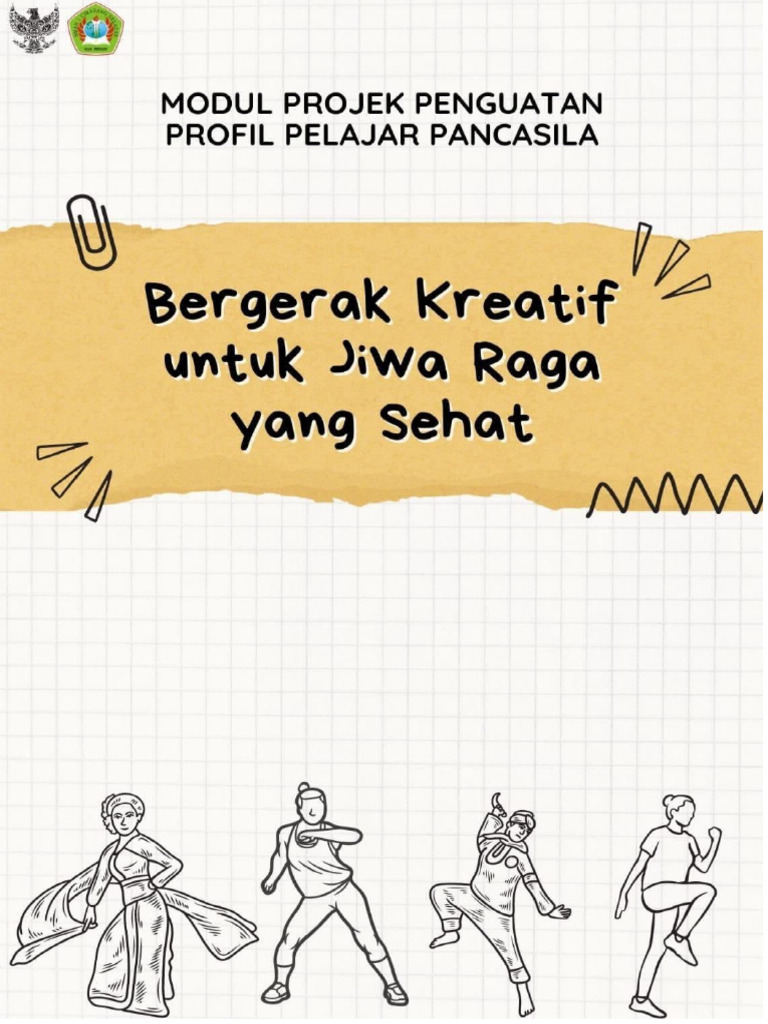 MODUL PROJEK PENGUATAN
PROFIL PELAJAR PANCASILA
Bergerak Kreatif
untuk Jiwa Raga
yang Sehat